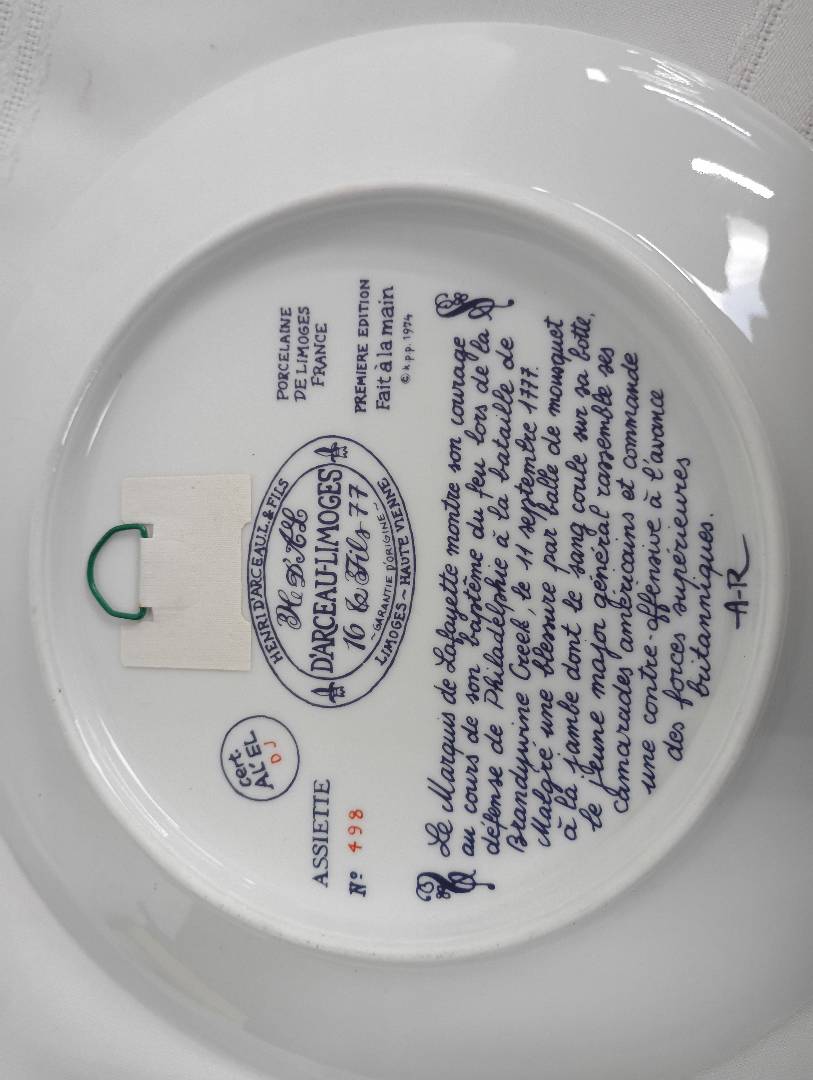 PORCELAINE
DE LIMOGES
FRANCE
PREMIERE EDITION
Fait à la main
© k.p.p. 1974
HENRI D'ARCEAU L. & FILS
H D'AL
D'ARCEAU-LIMOGES
16 & Fils 77
~GARANTIE D'ORIGINE~
LIMOGES ~ HAUTE VIENNE
Cert.
AL'EL
DJ
ASSIETTE
Nº 498
Le Marquis de Lafayette montre son courage
au cours de son baptême du feu lors de la
défense de Philadelphie à la bataille de
Brandywine Creek, le 11 septembre 1777.
Malgré une blessure par balle de mousquet
à la jambe dont le sang coule sur sa botte,
le jeune major général rassemble ses
camarades américains et commande
une contre-offensive à l'avance
des forces supérieures
britanniques.
A-R